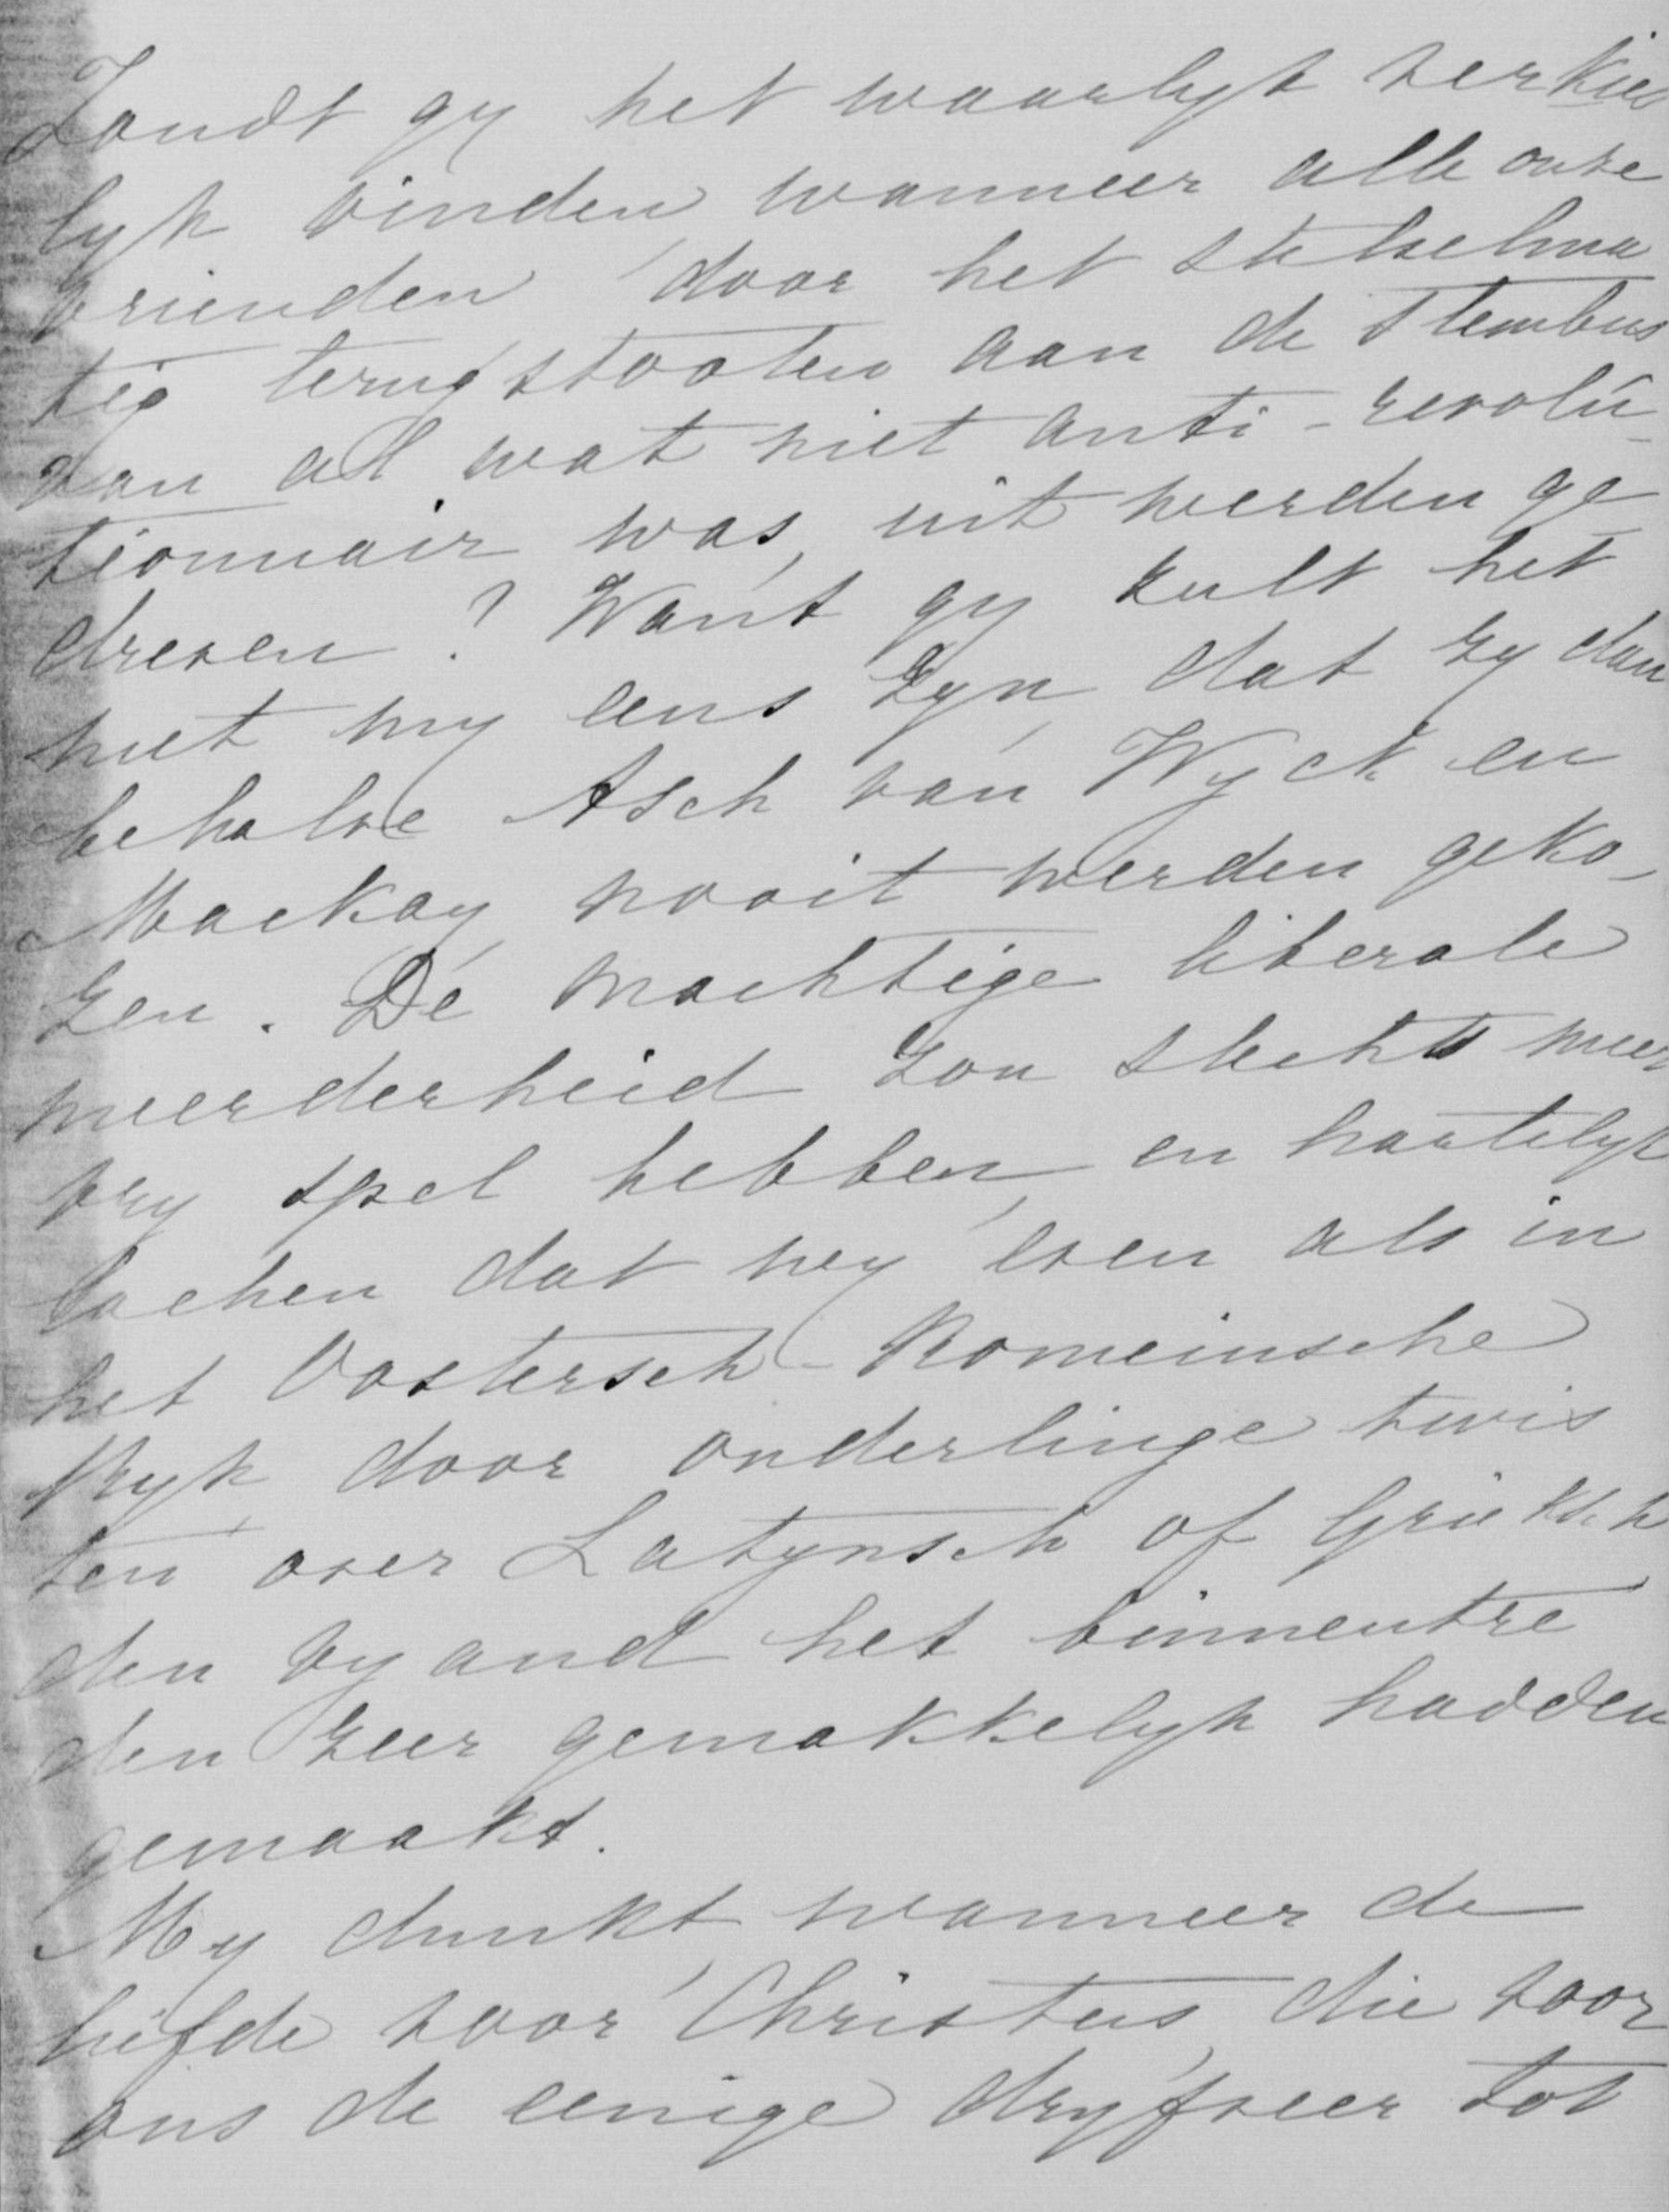 Zoudt gy het waarlyk verkies
lyk vinden, wanneer alle onze
vrienden door het stelselma
tig terugstooten aan de stembus
van al wat niet anti-revolu-
tionnair was, uit werden ge
dreven? Want gy zult het
met my eens zyn, dat zy dan
behalve Asch van Wyck en
Mackay nooit werden geko-
zen. De machtige liberale
meerderheid zou slechts meer
vry spel hebben, en hartelyk
lachen dat wy even als in
het Oostersch-Romeinsche
Ryk door onderlinge twis
ten over Latynsch of Grieksch
den vyand het binnentre
den zeer gemakkelyk hadden
gemaakt.
My dunkt, wanneer de
liefde voor Christus, die voor
ons de eenige dryfveer tot